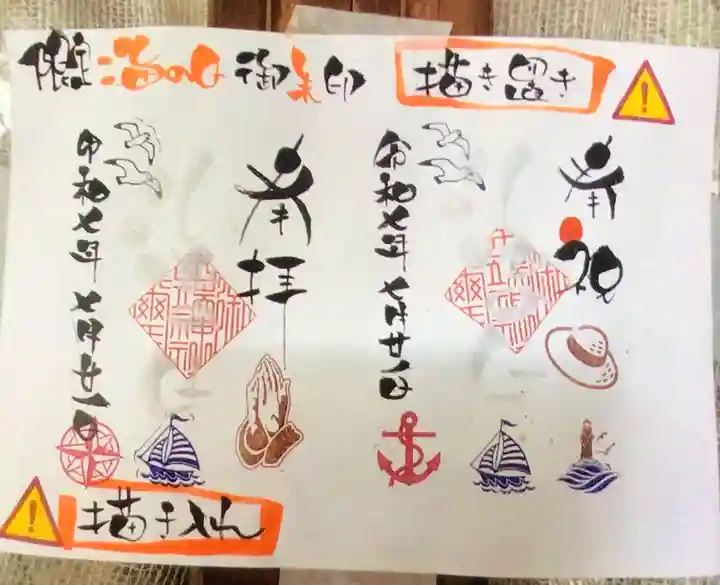 限定 海の日 御朱印
描き留き
参拝
令和七年 七月廿一日
奉祝
令和七年 七月廿一日
描き入れ